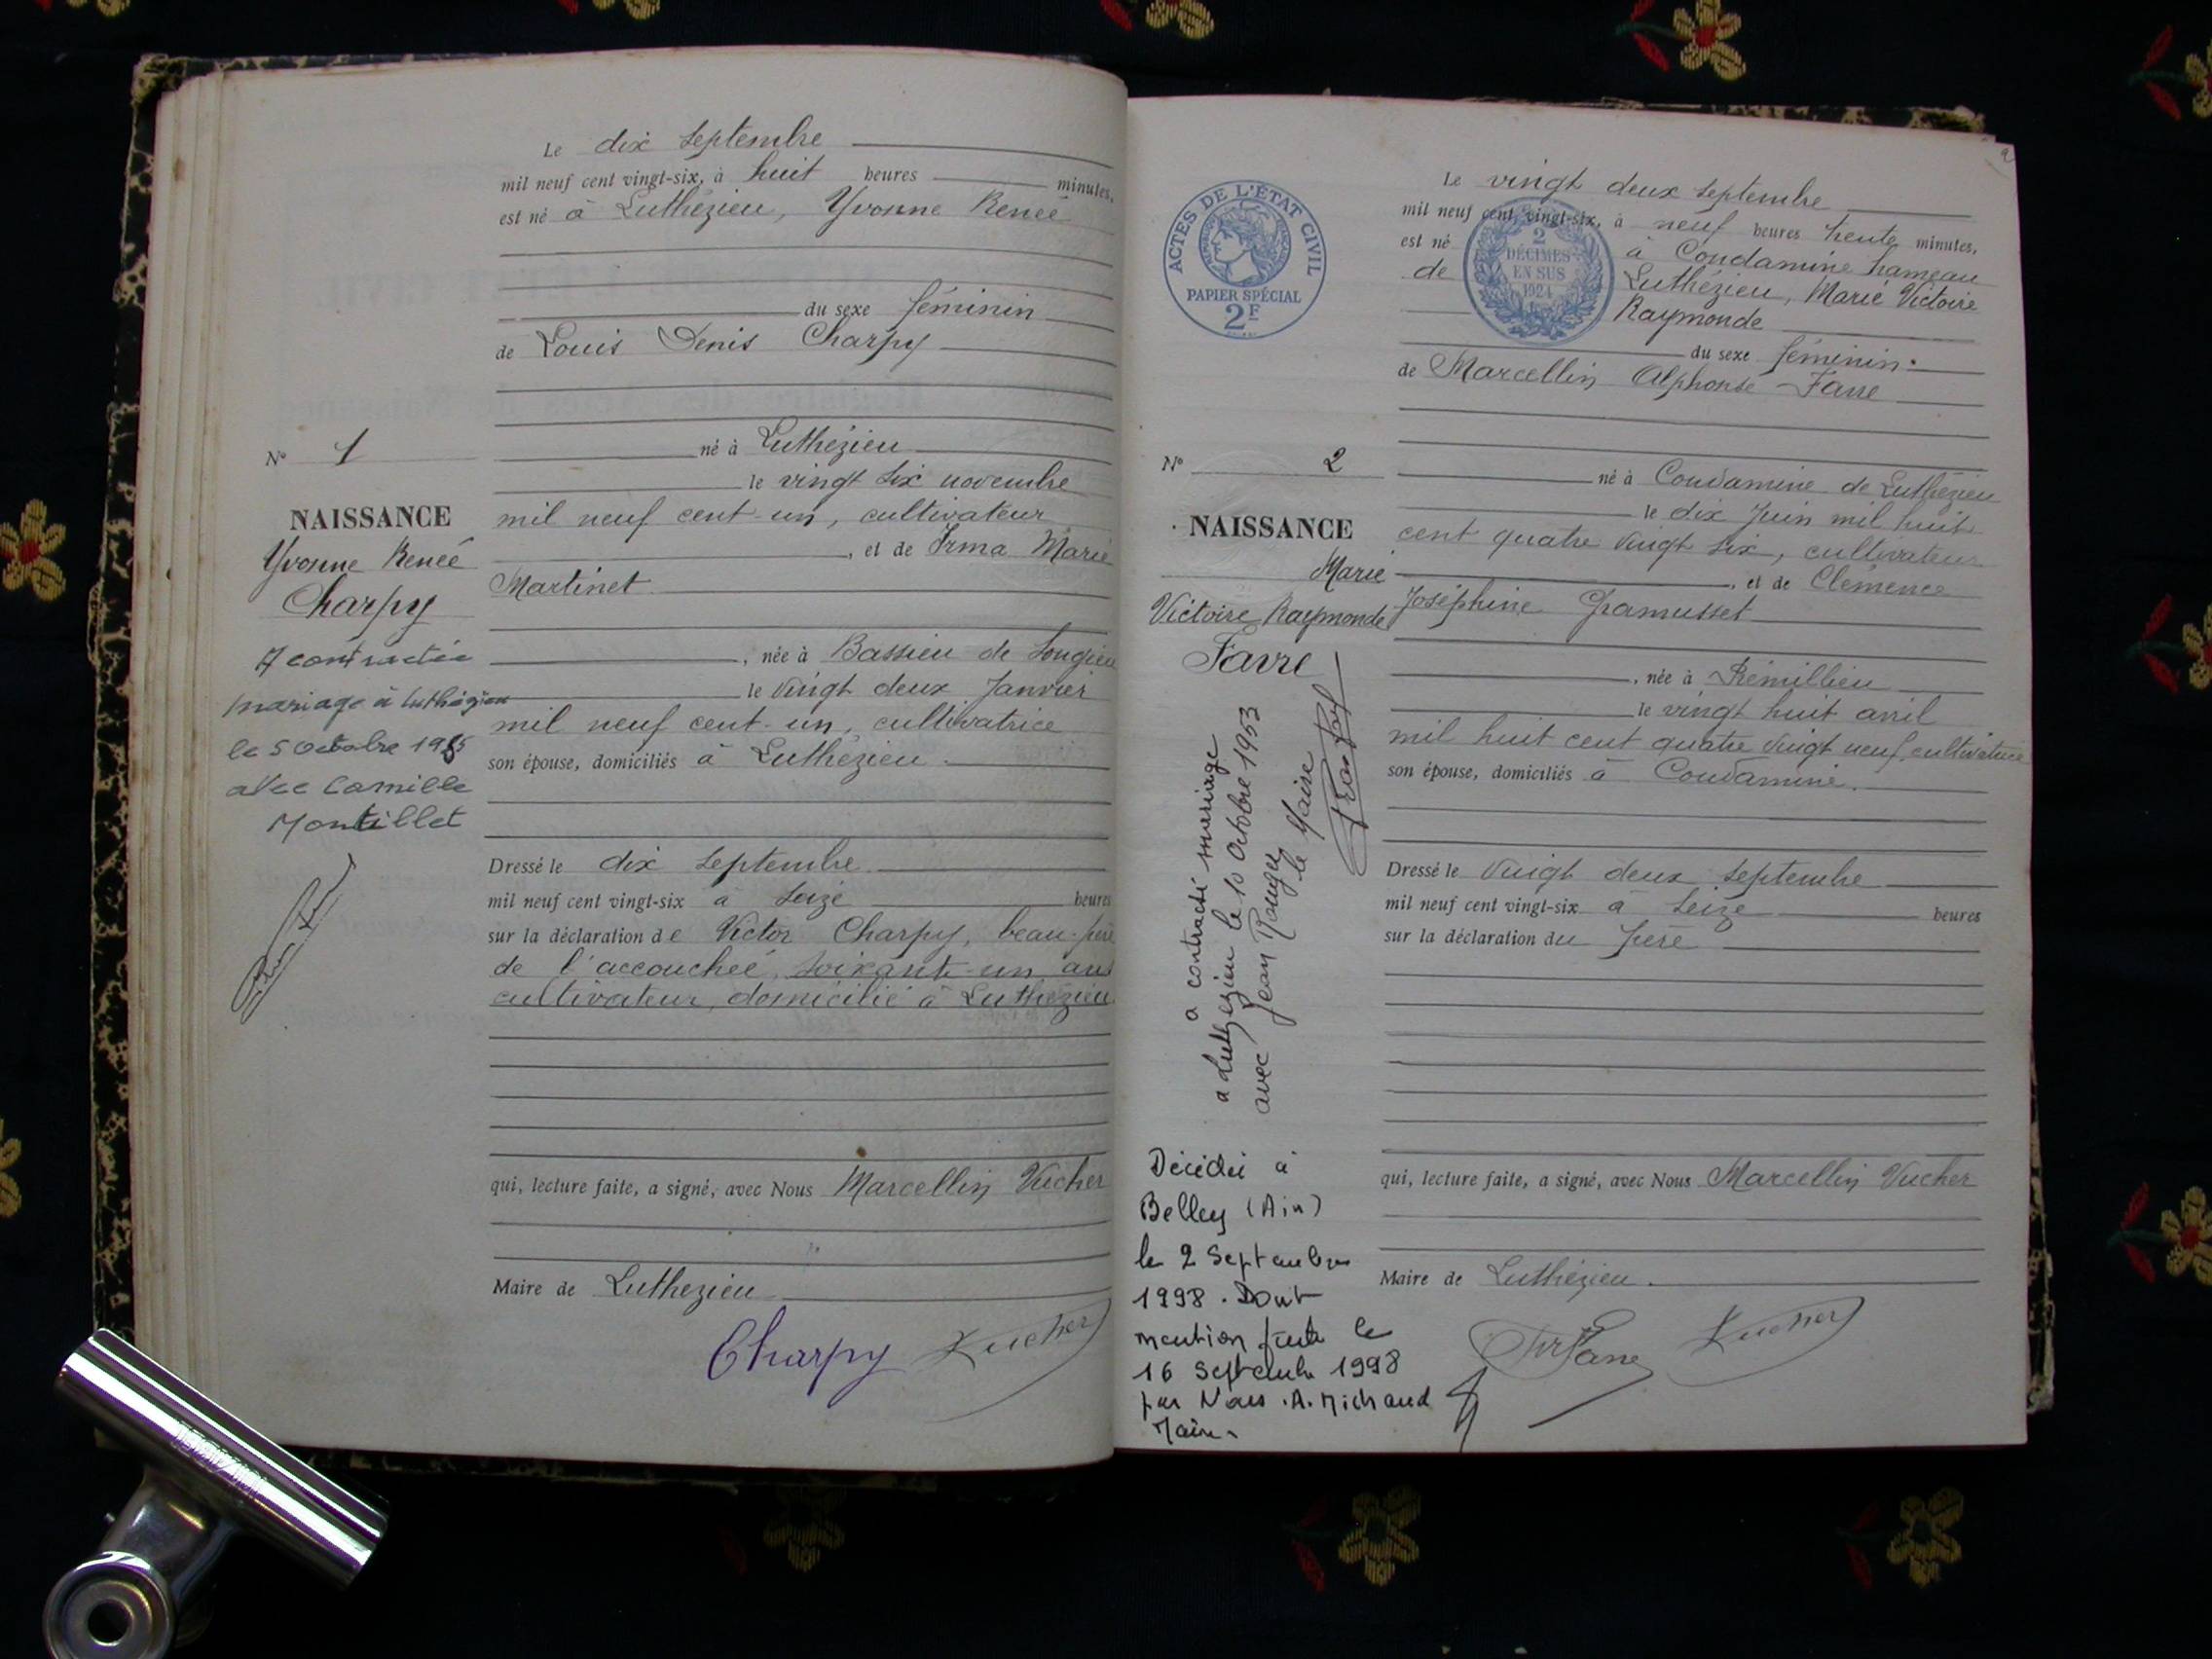 Le dix Septembre
mil neuf cent vingt-six, à huit heures minutes,
est né à Luthézieu, Yvonne Reneé
du sexe féminin
de Louis Denis Charpy
né à Luthézieu
le vingt six novembre
mil neuf cent-un, cultivateur
, et de Irma Marie
Martinet
, née à Bassieu de Songieu
le vingt deux Janvier
mil neuf cent-un, cultivatrice
son épouse, domiciliés à Luthézieu.
Dressé le dix Septembre
mil neuf cent vingt-six à seize heures
sur la déclaration de Victor Charpy, beau-père
de l'accouchée, soixante-un ans
cultivateur, domicilié à Luthézieu
qui, lecture faite, a signé, avec Nous Marcellin Vucher
Maire de Luthezieu
Charpy Vucher
N° 1
NAISSANCE
Yvonne Reneé
Charpy
A contractée
mariage à Luthézieu
le 5 Octobre
avec Camille
Montillet
Le vingt deux Septembre
mil neuf cent vingt-six, à neuf heures trente minutes,
est né à Condamine hameau
de Luthézieu, Marie Victoire
Raymonde
du sexe féminin.
de Marcellin Alphonse Favre
né à Condamine de Luthézieu
le dix Juin mil huit
cent quatre vingt six, cultivateur
, et de Clémence
Joséphine Gramusset
, née à Rémillieu
le vingt huit avril
mil huit cent quatre vingt neuf, cultivatrice
son épouse, domiciliés à Condamine.
Dressé le vingt deux Septembre
mil neuf cent vingt-six à seize heures
sur la déclaration du père
qui, lecture faite, a signé, avec Nous Marcellin Vucher
Maire de Luthézieu.
Favre Vucher
ACTES DE L'ÉTAT CIVIL
PAPIER SPÉCIAL
2F
2
DÉCIMES
EN SUS
1924
N° 2
NAISSANCE
Marie
Victoire Raymonde
Favre
a contracté mariage
a Luthezieu le 10 Octobre 1953
avec Jean Rougeu
le Maire
Décédée à
Belley (Ain)
le 2 Septembre
1998. Dont
mention faite le
16 Septembre 1998
par Nous A. Michaud
Maire